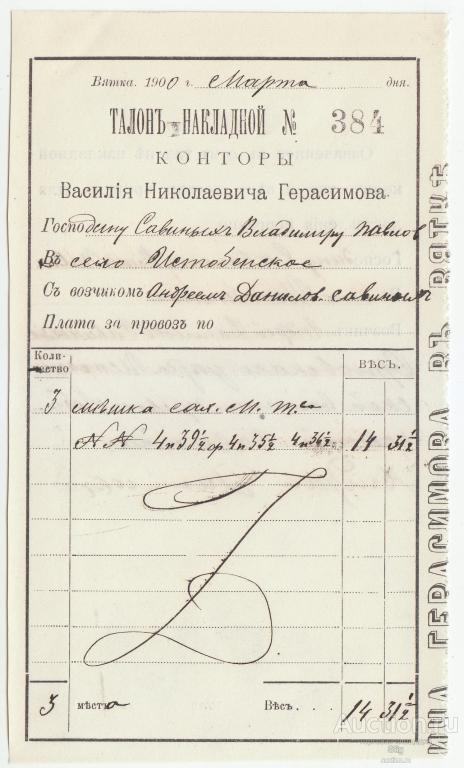 Вятка. 1900 г. Марта дня.
ТАЛОНЪ-НАКЛАДНОЙ № 384
КОНТОРЫ
Василія Николаевича Герасимова.
Господину Савиныхъ Владимиру Павлов
Въ село Истобенское
Съ возчикомъ Андреемъ Данилов. Савиныхъ
Плата за провозъ по
Коли-
чество
ВѢСЪ.
3 мѣшка сах. М.
NN 4п 39½ф 4п 35½ 4п 36½ 14 31½
3 мѣста Вѣсъ. 14 31½
ГЕРАСИМОВА ВЪ ВЯТКѢ
Auction.ru